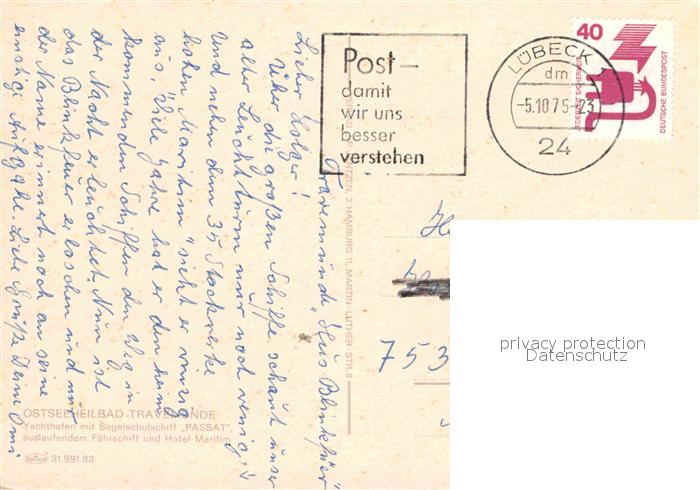 Travemünde, Haus Blinkfüer
Lieber Holger!
Über die großen Schiffe schaut unser
alter Leuchtturm nur noch wenig
Und neben dem 35 Stockwerke
hohen Maritim sieht er winzig
aus. Viele Jahre hat er den heim
kommenden Schiffen den Weg in
der Nacht erleuchtet. Nun ist
das Blinkfeuer erloschen und nur
der Name erinnert noch an seine
einstige Aufgabe. Liebe Grüße Deine Omi.
Post –
damit
wir uns
besser
verstehen
LÜBECK
dm
-5.10.75-23
24
40
JEDERZEIT SICHERHEIT
DEUTSCHE BUNDESPOST
2 HAMBURG 11, MARTIN-LUTHER-STR. 8
753
OSTSEEHEILBAD TRAVEMÜNDE
Yachthafen mit Segelschulschiff „PASSAT",
auslaufendem Fährschiff und Hotel Maritim
31.991.83
privacy protection
Datenschutz